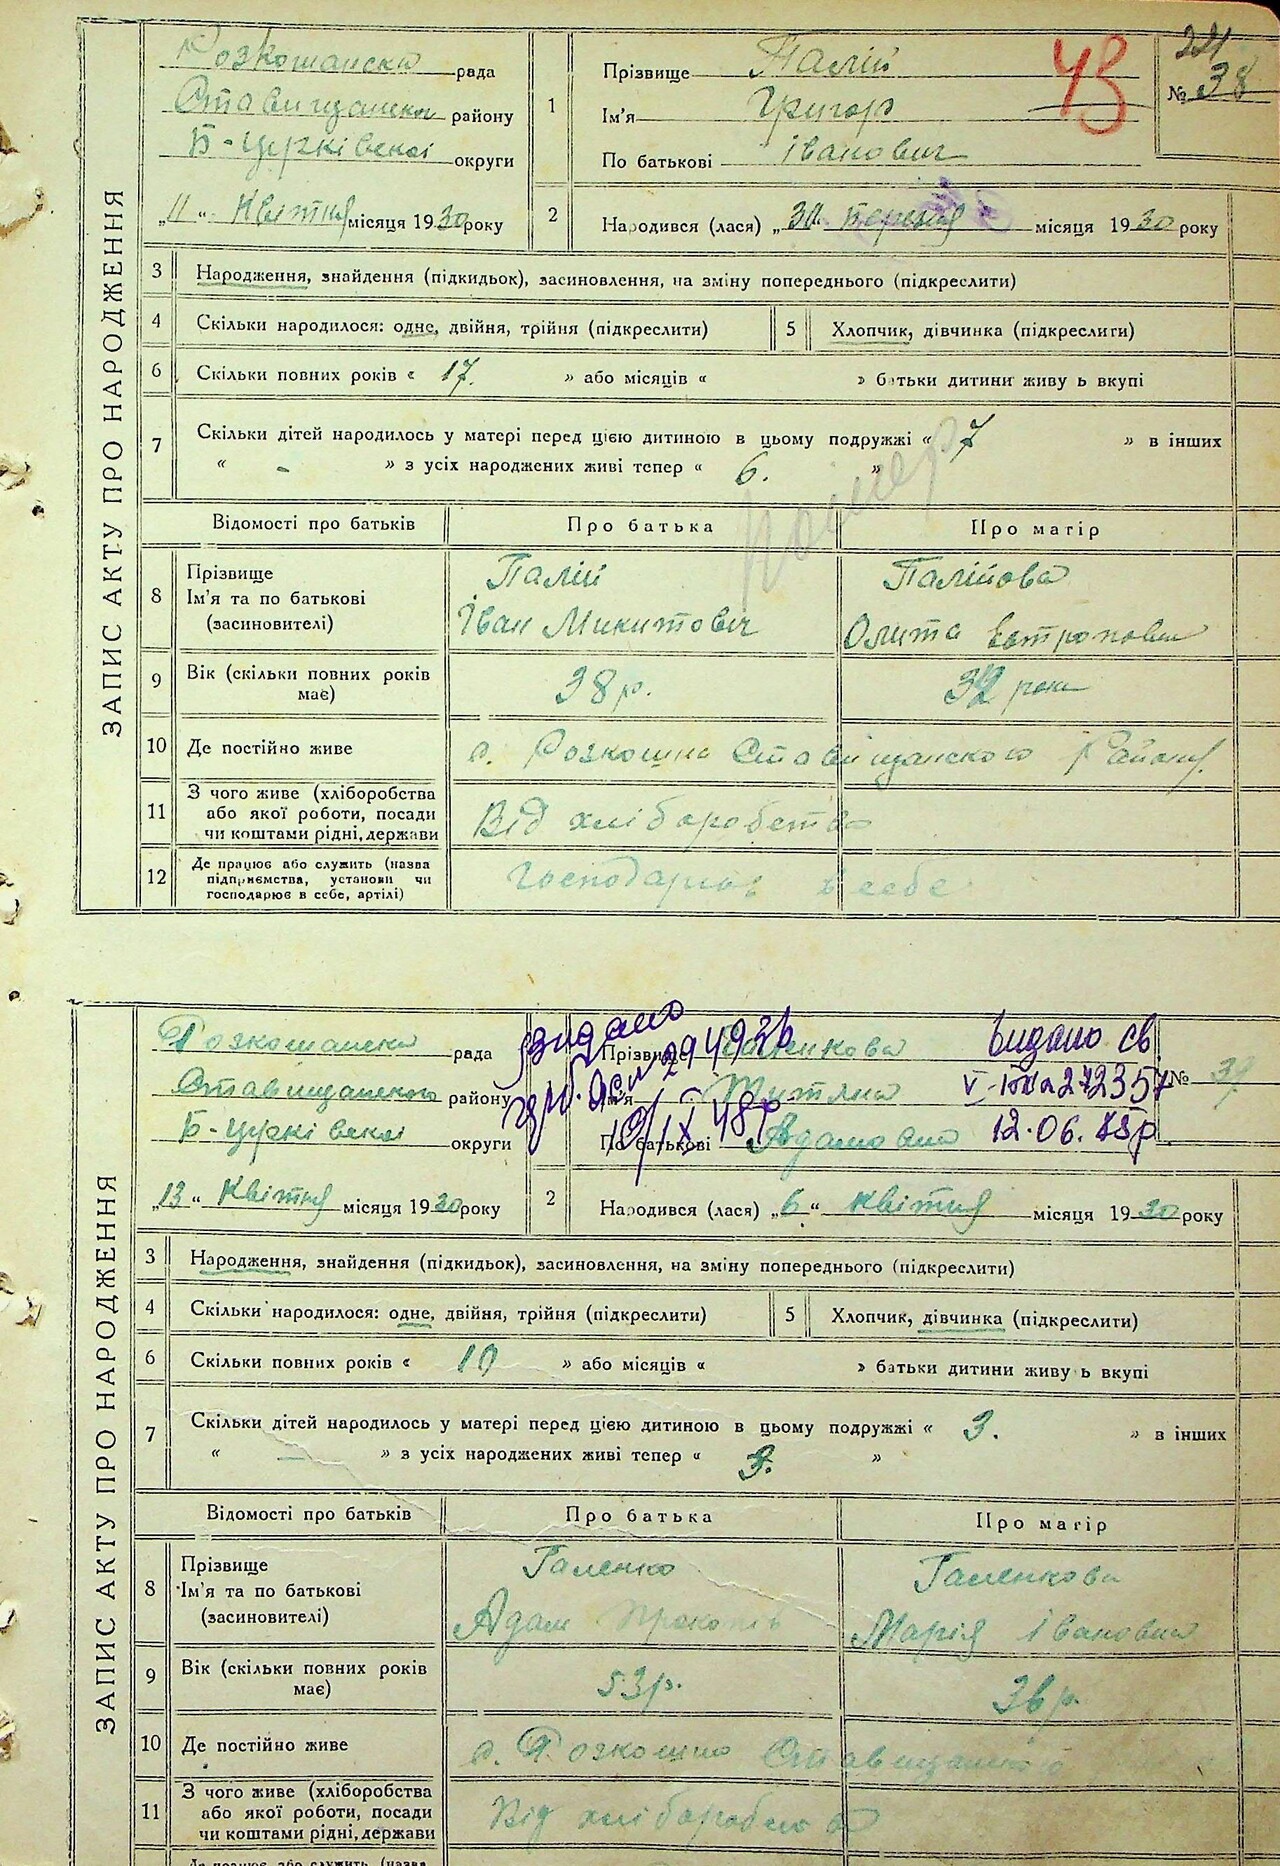 ЗАПИС АКТУ ПРО НАРОДЖЕННЯ
Розкошанська рада
Ставищанськ району
Б-Церківської округи
„11“ Квітня місяця 1930 року
1
Прізвище Палій
Ім'я Григор
По батькові Іванович
43
24
№ 38
2 Народився (лася) „30 Березня місяця 1930 року
3 Народження, знайдення (підкидьок), засиновлення, на зміну попереднього (підкреслити)
4 Скільки народилося: одне, двійня, трійня (підкреслити) 5 Хлопчик, дівчинка (підкреслити)
6 Скільки повних років « 17. » або місяців « » батьки дитини живуть вкупі
7 Скільки дітей народилось у матері перед цією дитиною в цьому подружжі « 7 » в інших
« - » з усіх народжених живі тепер « 6. »
помер
Відомості про батьків Про батька Про матір
8 Прізвище Палій Палійова
Ім'я та по батькові Іван Микитович
(засиновителі)
9 Вік (скільки повних років має) 38 р. 32 роки
10 Де постійно живе с. Розкошна Ставищанского Району
11 З чого живе (хліборобства або якої роботи, посади чи коштами рідні, держави Від хліборобства
12 Де працює або служить (назва підприємства, установи чи господарює в себе, артілі) Господарює в себе
ЗАПИС АКТУ ПРО НАРОДЖЕННЯ
Розкошанська рада
Ставищанского району
Б-Церківської округи
„13“ Квітня місяця 1930 року
Прізвище Галенкова
Ім'я Тутяна
По батькові Адамовна
видано
294936
10/IX 48р
видано св
272357
12.06.
№ 39
2 Народився (лася) „6“ Квітня місяця 1930 року
3 Народження, знайдення (підкидьок), засиновлення, на зміну попереднього (підкреслити)
4 Скільки народилося: одне, двійня, трійня (підкреслити) 5 Хлопчик, дівчинка (підкреслити)
6 Скільки повних років « 10 » або місяців « » батьки дитини живуть вкупі
7 Скільки дітей народилось у матері перед цією дитиною в цьому подружжі « 3. » в інших
« — » з усіх народжених живі тепер « 3. »
Відомості про батьків Про батька Про матір
8 Прізвище Галенко Галенкова
Ім'я та по батькові Адам Прокопів Марія Івановна
(засиновителі)
9 Вік (скільки повних років має) 53 р. 36 р.
10 Де постійно живе с. Розкошно Ставищанского
11 З чого живе (хліборобства або якої роботи, посади чи коштами рідні, держави Від хліборобства
Де працює або служить (назва